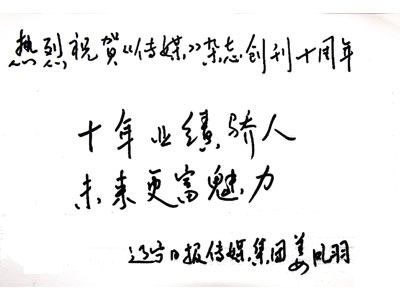 热烈祝贺《传媒》杂志创刊十周年
十年业绩骄人
未来更富魅力
辽宁日报传媒集团姜凤羽